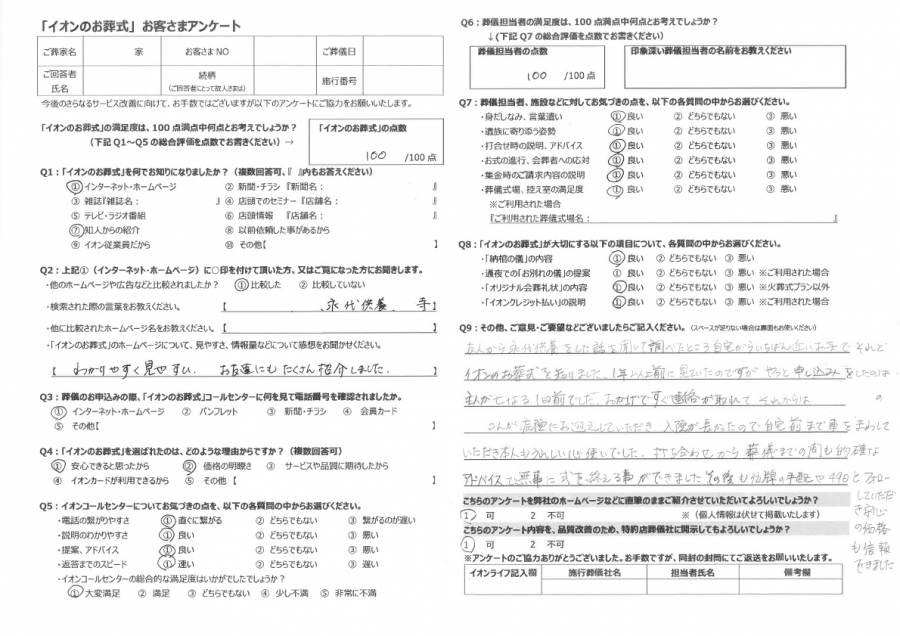 「イオンのお葬式」お客さまアンケート
ご葬家名 家 お客さまNO ご葬儀日
ご回答者氏名 続柄(ご回答者にとって故人さまは) 施行番号
今後のさらなるサービス改善に向けて、お手数ではございますが以下のアンケートにご協力をお願いいたします。
「イオンのお葬式」の満足度は、100点満点中何点とお考えでしょうか?
(下記Q1~Q5の総合評価を点数でお書きください)→
「イオンのお葬式」の点数
100 /100点
Q1:「イオンのお葬式」を何でお知りになりましたか?(複数回答可、『 』内もお答えください)
① インターネット・ホームページ ② 新聞・チラシ『新聞名: 』
③ 雑誌『雑誌名: 』 ④ 店頭でのセミナー『店舗名: 』
⑤ テレビ・ラジオ番組 ⑥ 店頭情報 『店舗名: 』
⑦ 知人からの紹介 ⑧ 以前依頼した事があるから
⑨ イオン従業員だから ⑩ その他【 】
Q2:上記①(インターネット・ホームページ)に○印を付けて頂いた方、又はご覧になった方にお聞きします。
・他のホームページや広告などと比較されましたか? ① 比較した ② 比較していない
・検索された際の言葉をお教えください。 【 、永代供養、寺】
・他に比較されたホームページ名をお教えください。【 】
・「イオンのお葬式」のホームページについて、見やすさ、情報量などについて感想をお聞かせください。
【 わかりやすく見やすい。 お友達にもたくさん紹介しました。 】
Q3:葬儀のお申込みの際、「イオンのお葬式」コールセンターに何を見て電話番号を確認されましたか。
① インターネット・ホームページ ② パンフレット ③ 新聞・チラシ ④ 会員カード
⑤ その他【 】
Q4:「イオンのお葬式」を選ばれたのは、どのような理由からですか?(複数回答可)
① 安心できると思ったから ② 価格の明瞭さ ③ サービスや品質に期待したから
④ イオンカードが利用できるから ⑤ その他【 】
Q5:イオンコールセンターについてお気づきの点を、以下の各質問の中からお選びください。
・電話の繋がりやすさ ① 直ぐに繋がる ② どちらでもない ③ 繋がるのが遅い
・説明のわかりやすさ ① 良い ② どちらでもない ③ 悪い
・提案、アドバイス ① 良い ② どちらでもない ③ 悪い
・返答までのスピード ① 速い ② どちらでもない ③ 遅い
・イオンコールセンターの総合的な満足度はいかがでしたでしょうか?
① 大変満足 ② 満足 ③ どちらでもない ④ 少し不満 ⑤ 非常に不満
Q6:葬儀担当者の満足度は、100点満点中何点とお考えでしょうか?
↓(下記Q7の総合評価を点数でお書きください)
葬儀担当者の点数 印象深い葬儀担当者の名前をお教えください
100 /100点
Q7:葬儀担当者、施設などに対してお気づきの点を、以下の各質問の中からお選びください。
・身だしなみ、言葉遣い ① 良い ② どちらでもない ③ 悪い
・遺族に寄り添う姿勢 ① 良い ② どちらでもない ③ 悪い
・打合せ時の説明、アドバイス ① 良い ② どちらでもない ③ 悪い
・お式の進行、会葬者への応対 ① 良い ② どちらでもない ③ 悪い
・集金時のご請求内容の説明 ① 良い ② どちらでもない ③ 悪い
・葬儀式場、控え室の満足度 ① 良い ② どちらでもない ③ 悪い
※ご利用された場合
『ご利用された葬儀式場名: 』
Q8:「イオンのお葬式」が大切にする以下の項目について、各質問の中からお選びください。
・「納棺の儀」の内容 ① 良い ② どちらでもない ③ 悪い
・通夜での「お別れの儀」の提案 ① 良い ② どちらでもない ③ 悪い ※ご利用された場合
・「オリジナル会葬礼状」の内容 ① 良い ② どちらでもない ③ 悪い ※火葬式プラン以外
・「イオンクレジット払い」の説明 ① 良い ② どちらでもない ③ 悪い ※ご利用された場合
Q9:その他、ご意見・ご要望などございましたらご記入ください。(スペースが足りない場合は裏面もお使いください)
友人から永代供養をした話を聞いて調べたところ自宅からいちばん近いお寺でそれと
イオンのお葬式を知りました。1年以上前に見ていたのですがやっと申し込みをしたのは
主人が亡なる1日前でした。おかげですぐ連絡が取れてそれからは の
さんが病院にお迎えしていただき 入院が長かったので自宅前まで車をまわして
いただき本人もうれしい心使いでした。打ち合わせから葬儀までの間も的確な
アドバイスで無事に式を終える事ができました その後も位牌の手配や49日とフォロー
していただき
の価格も信頼できました
こちらのアンケートを弊社のホームページなどに直筆のままご紹介させていただいてよろしいでしょうか?
1 可 2 不可 ※(個人情報は伏せて掲載いたします)
こちらのアンケート内容を、品質改善のため、特約店葬儀社に開示してもよろしいでしょうか?
1 可 2 不可
※アンケートのご協力ありがとうございました。お手数ですが、同封の封筒にてご返送をお願いいたします。
イオンライフ記入欄 施行葬儀社名 担当者氏名 備考欄